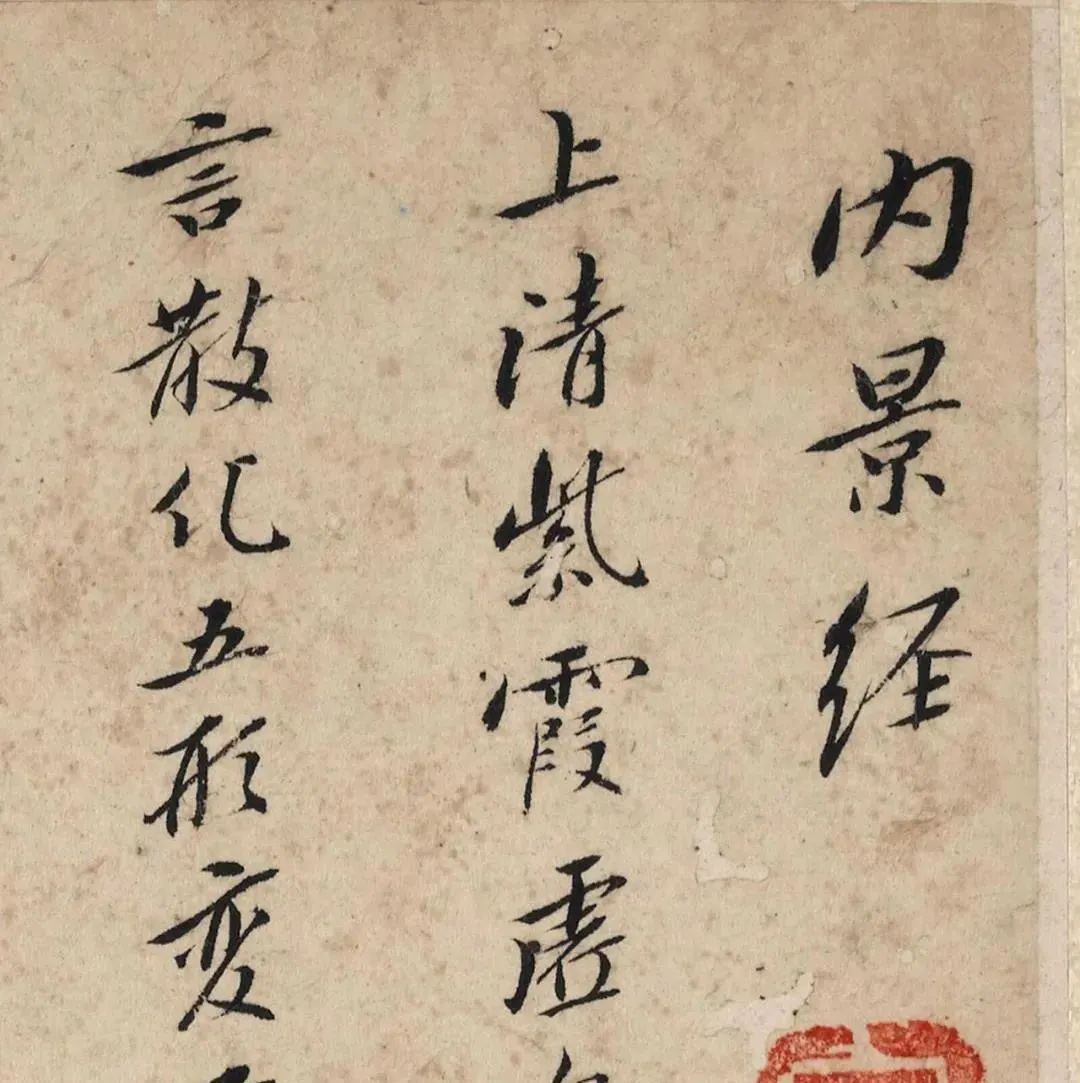 内景经
上清紫霞虚
言散化五形变